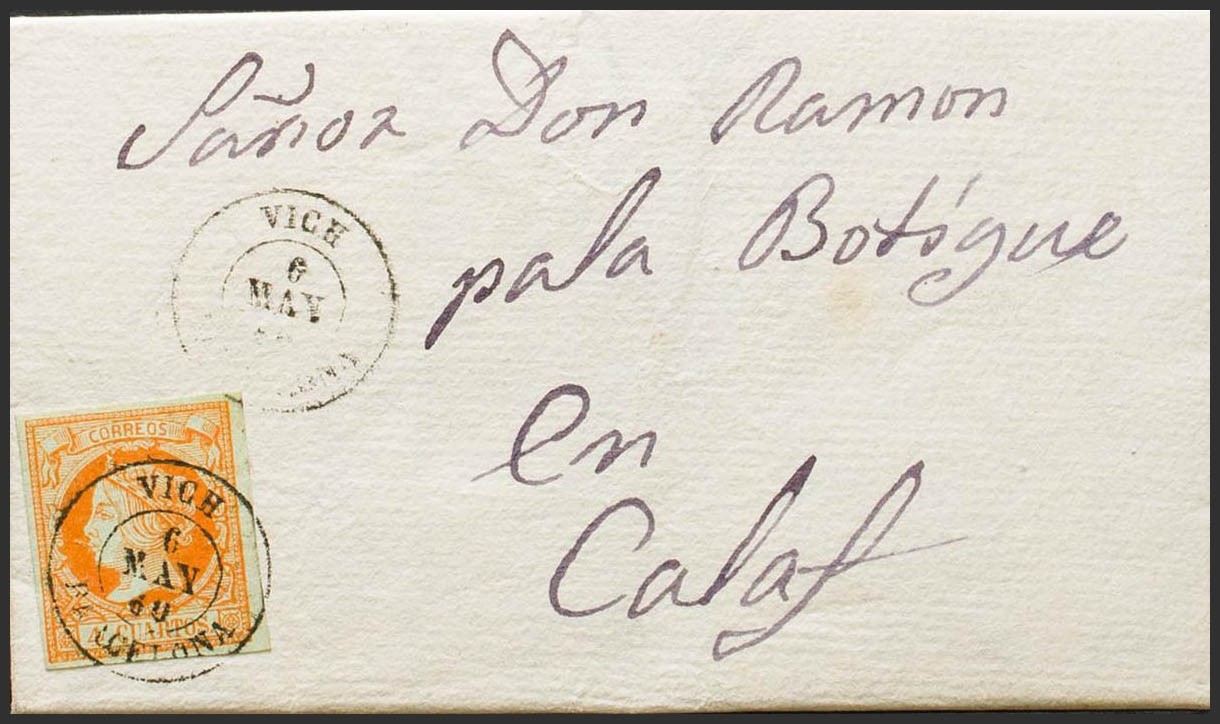 Sañor Don Ramon
pala Botigue
en
Calaf
VICH
6
MAY
CORREOS
VICH
6
MAY
60
BARCELONA
4 CUARTOS